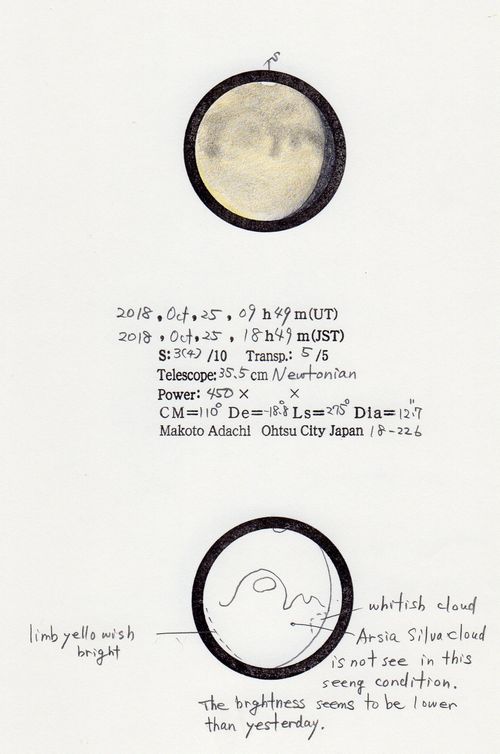 S
2018, Oct, 25, 09 h 49 m(UT)
2018, Oct, 25, 18 h 49 m(JST)
S: 3(4) /10 Transp.: 5 /5
Telescope: 35.5 cm Newtonian
Power: 450 × ×
CM=110° De=-18.8° Ls=275° Dia=12.7"
Makoto Adachi Ohtsu City Japan 18-226
whitish cloud
limb yello wish
bright
Arsia Silva cloud
is not see in this
seeng condition.
The brghtness seems to be lower
than yesterday.